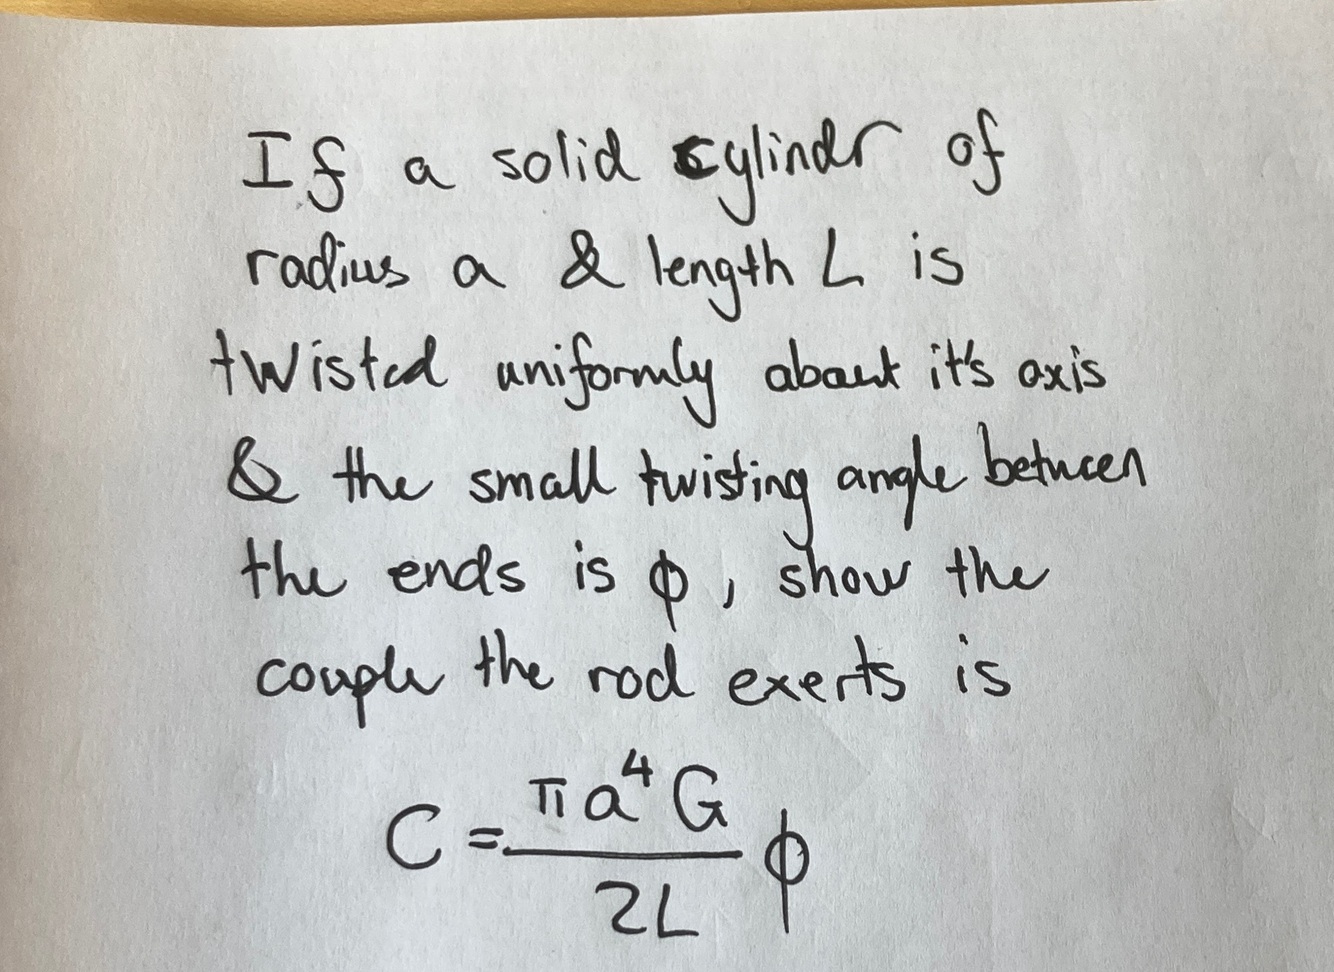 If a solid cylindr of
radius a & length L is
twisted uniformly about it's axis
& the small twisting angle between
the ends is ϕ, show the
couple the rod exerts is
C = πa⁴G / 2L ϕ